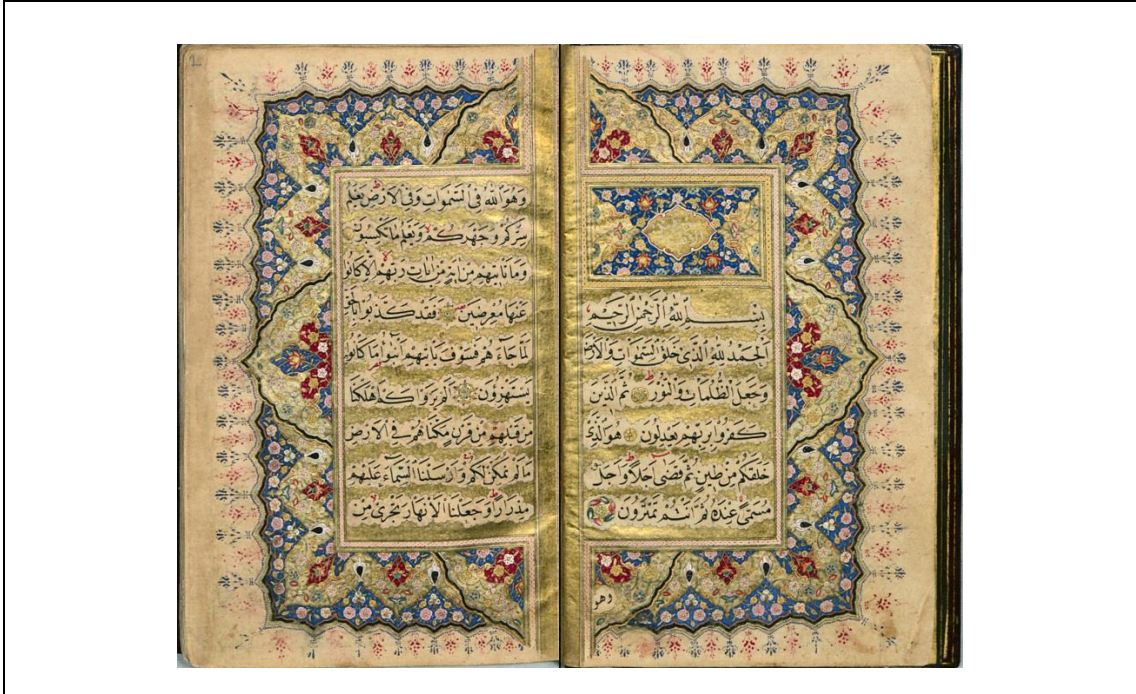 بِسْــمِ ٱللّٰهِ ٱلرَّحْمٰنِ ٱلرَّحِيمِ
اَلْحَمْدُ لِلّٰهِ الَّذِى خَلَقَ السَّمٰوَاتِ وَالْاَرْضَ
وَجَعَلَ الظُّلُمَاتِ وَالنُّورَ ثُمَّ الَّذِينَ
كَفَرُوا بِرَبِّهِمْ يَعْدِلُونَ هُوَ الَّذِى
خَلَقَكُمْ مِنْ طِينٍ ثُمَّ قَضٰى اَجَلًا وَاَجَلٌ
مُسَمًّى عِنْدَهُ ثُمَّ اَنْتُمْ تَمْتَرُونَ
وهو
وَهُوَ اللّٰهُ فِى السَّمٰوَاتِ وَفِى الْاَرْضِ يَعْلَمُ
سِرَّكُمْ وَجَهْرَكُمْ وَيَعْلَمُ مَا تَكْسِبُونَ
وَمَا تَاْتِيهِمْ مِنْ اٰيَةٍ مِنْ اٰيَاتِ رَبِّهِمْ اِلَّا كَانُوا
عَنْهَا مُعْرِضِينَ فَقَدْ كَذَّبُوا بِالْحَقِّ
لَمَّا جَاءَهُمْ فَسَوْفَ يَاْتِيهِمْ اَنْبٰٓؤُا مَا كَانُوا بِهِ
يَسْتَهْزِؤُنَ اَلَمْ يَرَوْا كَمْ اَهْلَكْنَا
مِنْ قَبْلِهِمْ مِنْ قَرْنٍ مَكَّنَّاهُمْ فِى الْاَرْضِ
مَا لَمْ نُمَكِّنْ لَكُمْ وَاَرْسَلْنَا السَّمَاءَ عَلَيْهِمْ
مِدْرَارًا وَجَعَلْنَا الْاَنْهَارَ تَجْرِى مِنْ